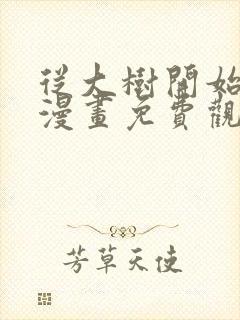 從大樹開始
漫畫免費觀
芳草天使